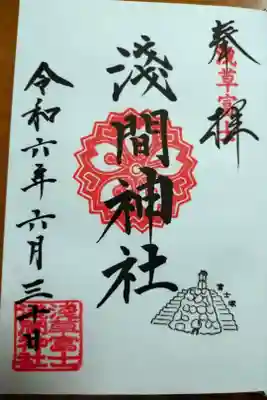 奉拝
浅草富士
淺間神社
令和六年六月三十日
富士塚
浅草富士
浅間神社